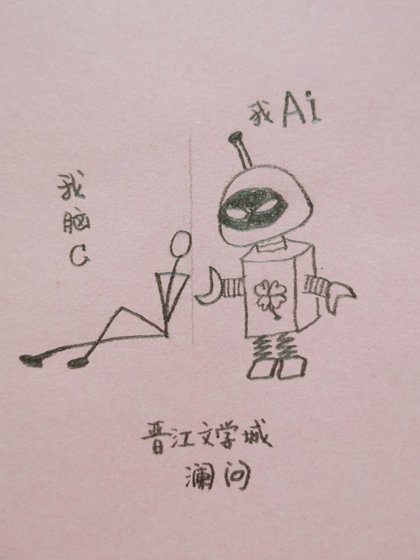 我 Ai
我脑C
晋江文学城
澜问